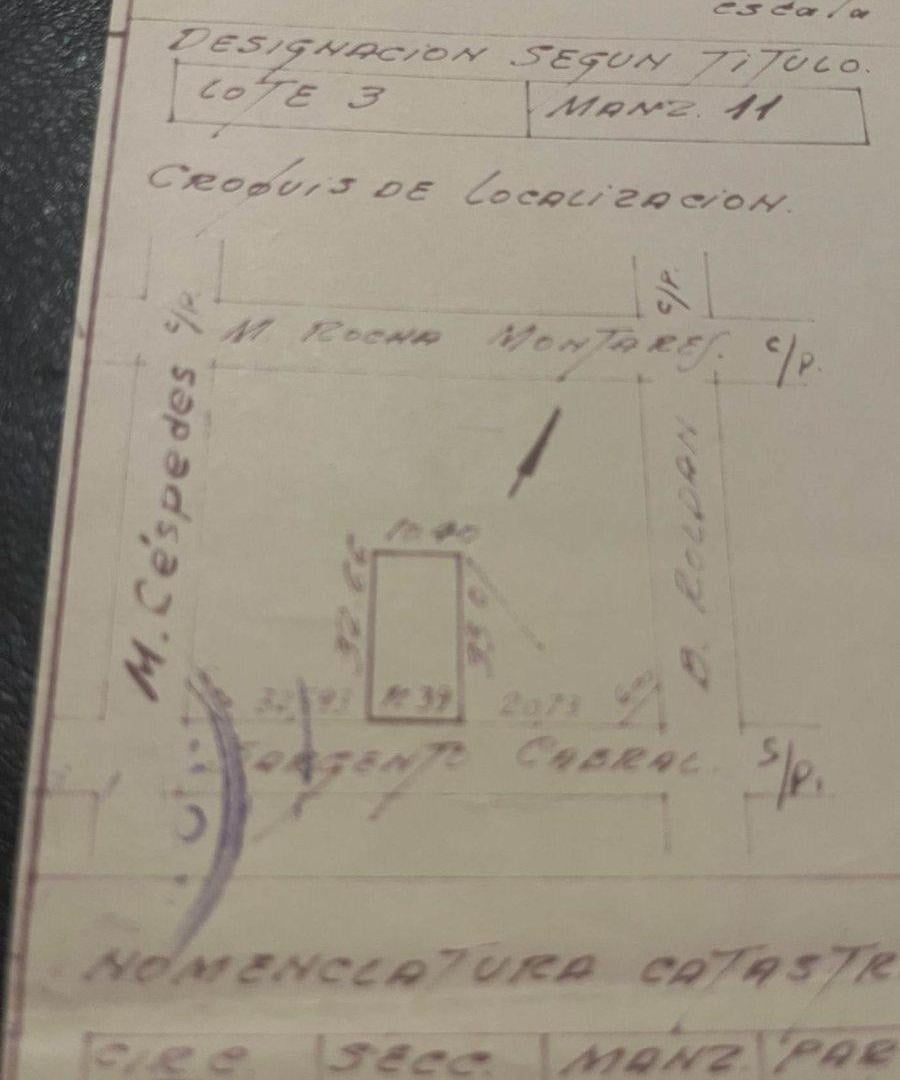 escala
DESIGNACION SEGUN TITULO.
LOTE 3
MANZ. 11
CROQUIS DE LOCALIZACION.
C/P.
C/P.
M. ROCHA MONTARES.
C/P.
M. Céspedes
B. ROLDAN
10.40
32.66
10.39
20.73
SARGENTO CABRAL.
S/P.
NOMENCLATURA CATASTR
CIRC.
SECC.
MANZ.
PAR